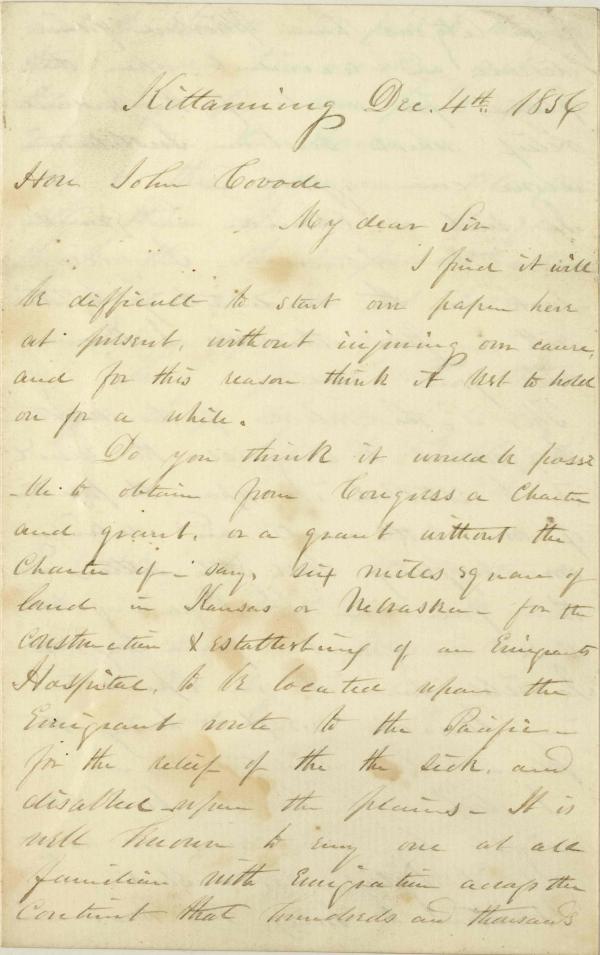 Kittanning Dec. 4th 1856
Hon John Covode
My dear Sir
I find it will
be difficult to start our paper here
at present, without injuring our cause,
and for this reason think it best to hold
on for a while.
Do you think it would be possi
-ble to obtain from Congress a Charter
and grant, or a grant without the
Charter if - say, six miles square of
land in Kansas or Nebraska - for the
construction & establishing of an Emigrants
Hospital, to be located upon the
Emigrant route to the Pacific -
for the relief of the the sick, and
disabled - upon the plains - It is
well known to any one at all
familiar with Emigration across the
Continent that hundreds and thousands